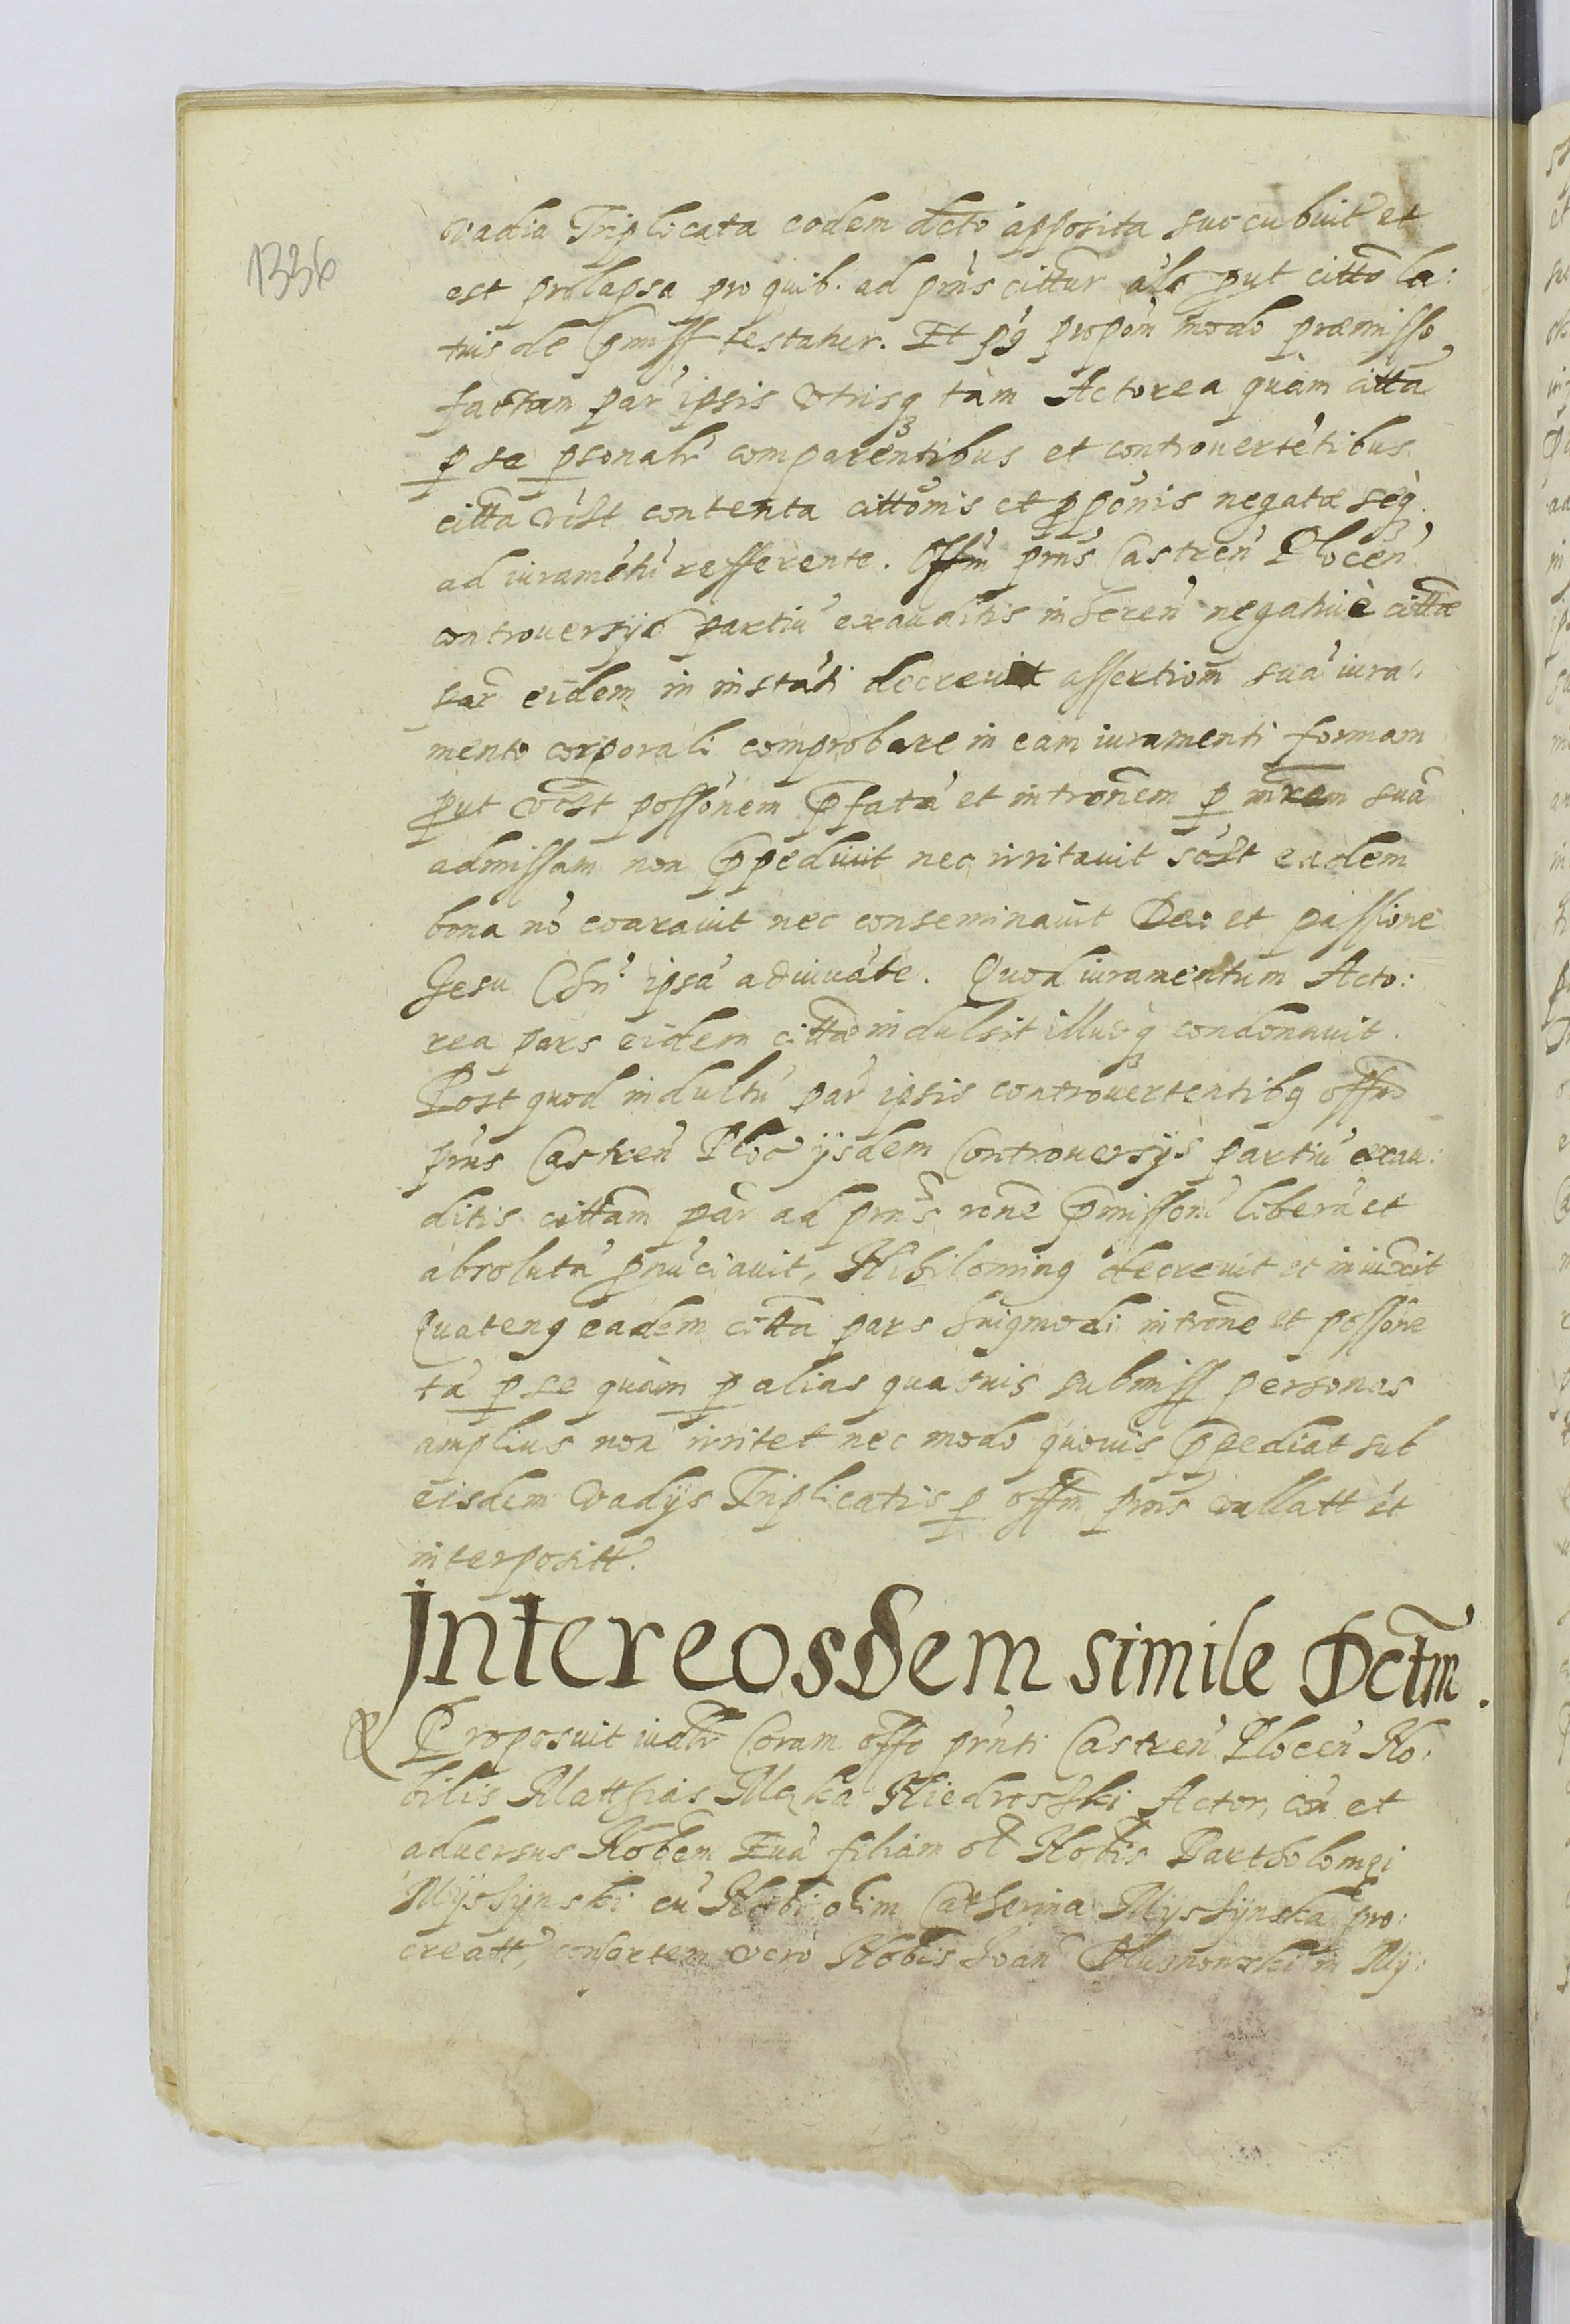 1336
vadia Triplicata eodem dcto apposita succubuit et
est prolapsa pro quib. ad prns cittur put citto la:
tius de pmiss testatur. Et propom modo praemisso
factam par ipsis utrisq tàm Actorea quàm citta
p se psonalr comparentibus et controuertétibus
citta contenta cittonis et pponis negatæ seq
ad iuramétu refferente. Offm prns Castren Plocen
controuersys partiu exauditis inhæren negatiuè cittæ
par eidem in instáti decreuit assertiom sua iura:
mento corporali comprobare in eam iuramenti formam
put possonem pfata et intronem p suã
admissam non ppediuit nec irritauit eadem
bona nõ exarauit nec conseminauit Deo et passione
Jesu Chri ipsa adiuuáte. Quod iuramentum Acto:
rea pars eidem cittæ indulsit illudq condonauit.
Post quod indultu par ipsis controuertentibq offm
prns Castren Ploc ijsdem Controuersijs partiu exau:
ditis cittam par ad prns rone pmissoru libera et
absoluta pnuciauit, Nihilominq decreuit et iniunxit
Quatenq eadem citta pars huiqmodi introne et possone
tá p se quàm p alias quasuis submiss personas
amplius non irritet nec modo quouis ppediat sub
eisdem Vadijs Triplicatis p offm prns vallatt et
interpositt.
Inter eosdem simile Dctm.
Proposuit iudlr Coram offo prnti Castren Plocen No:
bilis Matthias Mąka Niedrosski Actor, cõn et
aduersus Nobem Eua filiam ol Nobis Bartholomęi
Mijshijnski cu Nobi olim Catherina Myshijnska pro:
creatt, consortem verò Nobis Joan in Mij: